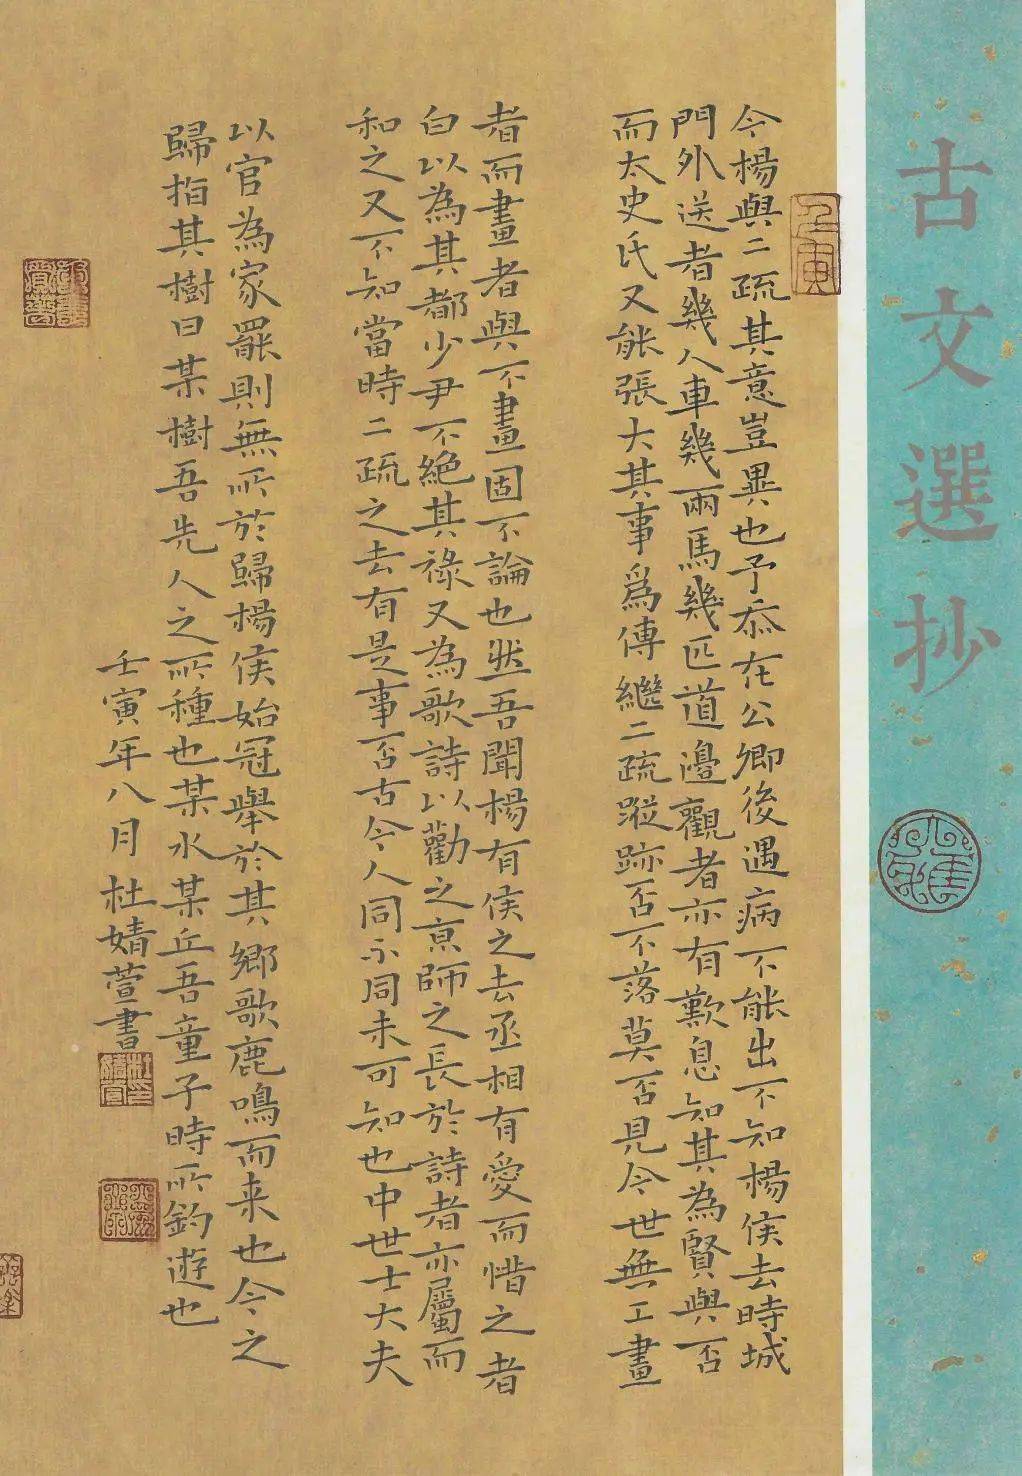 古文選抄
壬寅
今楊與二疏其意豈異也予忝在公卿後遇病不能出不知楊侯去時城
門外送者幾人車幾兩馬幾匹道邊觀者亦有歎息知其為賢與否
而太史氏又能張大其事爲傳繼二疏蹤跡否不落莫否見今世無工畫
者而畫者與不畫固不論也然吾聞楊有侯之去丞相有愛而惜之者
白以為其都少尹不絕其祿又為歌詩以勸之京師之長於詩者亦屬而
和之又不知當時二疏之去有是事否古今人同不同未可知也中世士大夫
以官為家罷則無所於歸楊侯始冠舉於其鄉歌鹿鳴而来也今之
歸指其樹曰某樹吾先人之所種也某水某丘吾童子時所釣遊也
壬寅年八月杜婧萱書